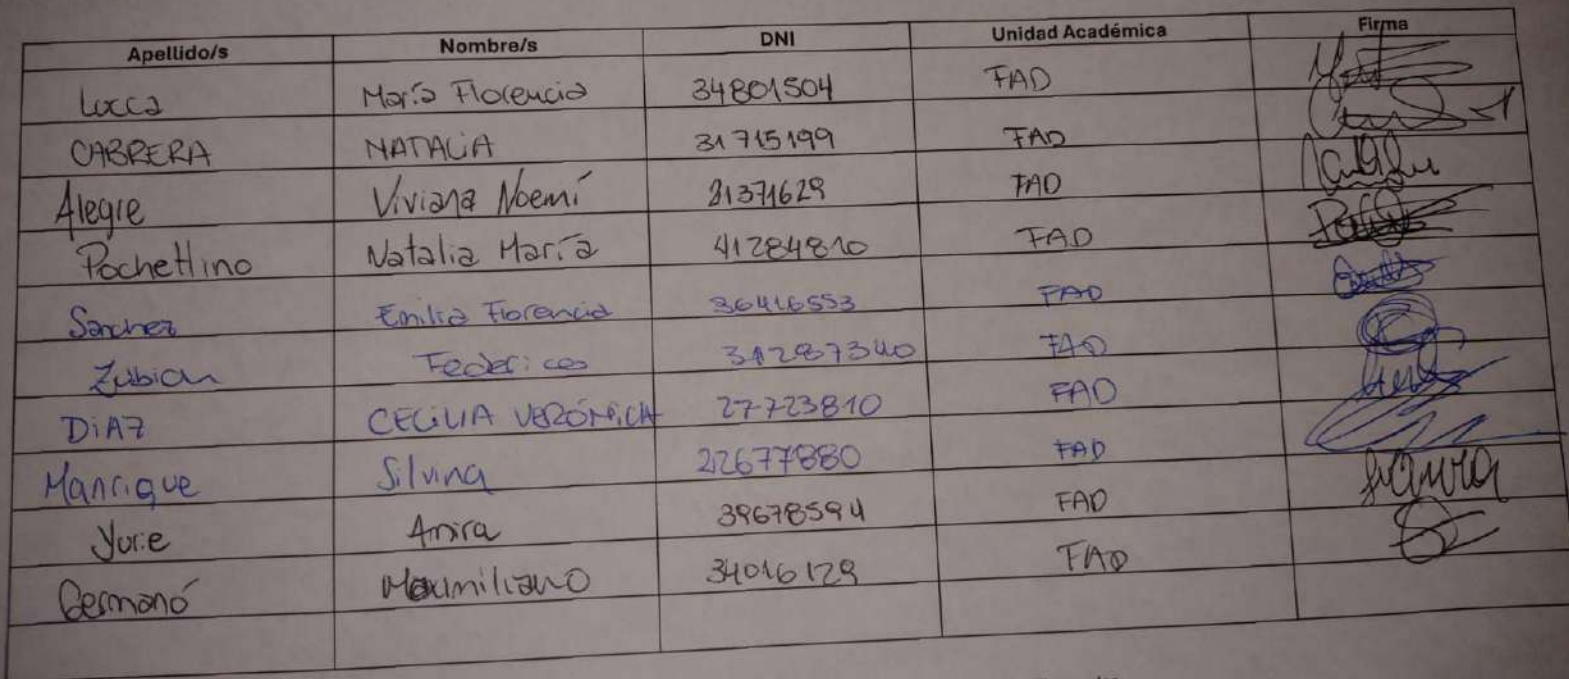 Apellido/s Nombre/s DNI Unidad Académica Firma
Lucca María Florencia 34801504 FAD
CABRERA NATALIA 31715199 FAD
Alegre Viviana Noemí 31371629 FAD
Pochettino Natalia María 41284810 FAD
Sanchez Emilia Florencia 36416553 FAD
Zubian Federico 31287340 FAD
DiAZ CECILIA VERÓNICA 27723810 FAD
Manrique Silvina 22677880 FAD
Yurie Amira 39678594 FAD
Germanó Maximiliano 34016129 FAD